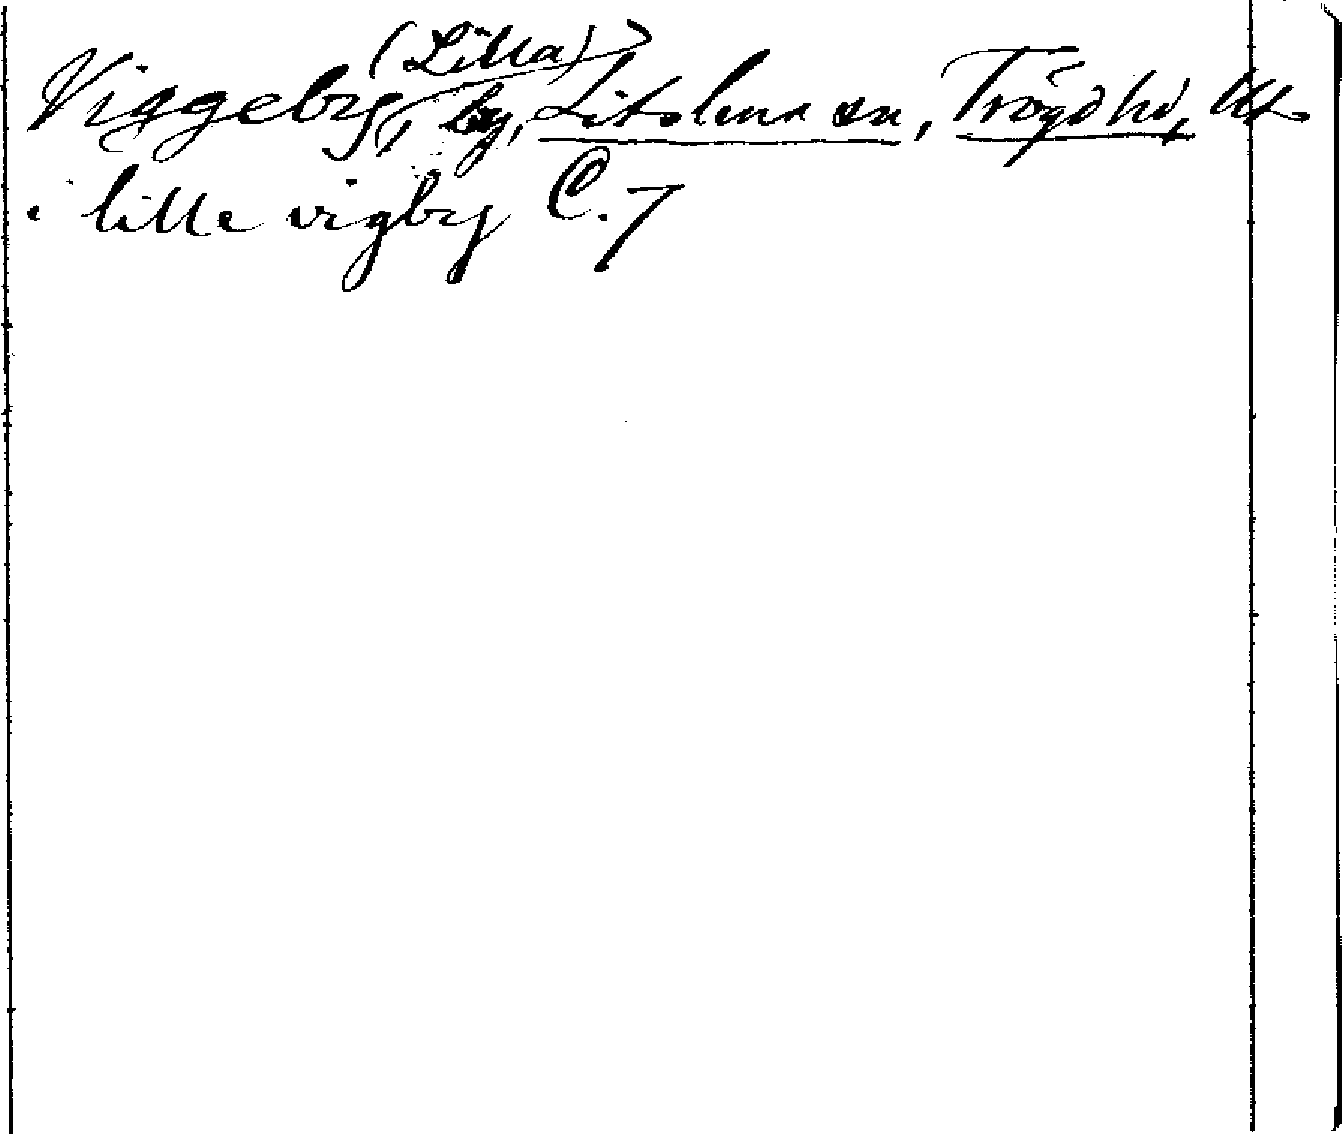 Viggeby, (Lilla) by, Litslena sn, Trögd hd, Upl.
i lille vigby C. 7